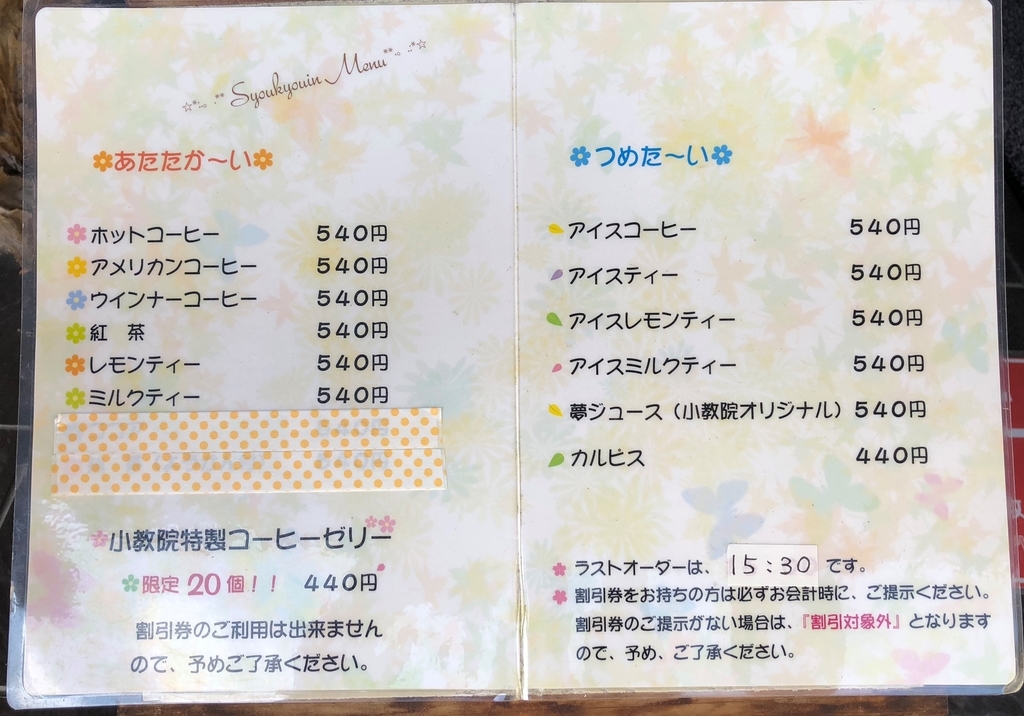 Syoukyouin Menu
あたたか～い
ホットコーヒー 540円
アメリカンコーヒー 540円
ウインナーコーヒー 540円
紅 茶 540円
レモンティー 540円
ミルクティー 540円
小教院特製コーヒーゼリー
限定20個！！ 440円
割引券のご利用は出来ません
ので、予めご了承ください。
つめた～い
アイスコーヒー 540円
アイスティー 540円
アイスレモンティー 540円
アイスミルクティー 540円
夢ジュース（小教院オリジナル） 540円
カルピス 440円
ラストオーダーは、 15：30 です。
割引券をお持ちの方は必ずお会計時に、ご提示ください。
割引券のご提示がない場合は、『割引対象外』となります
ので、予め、ご了承ください。